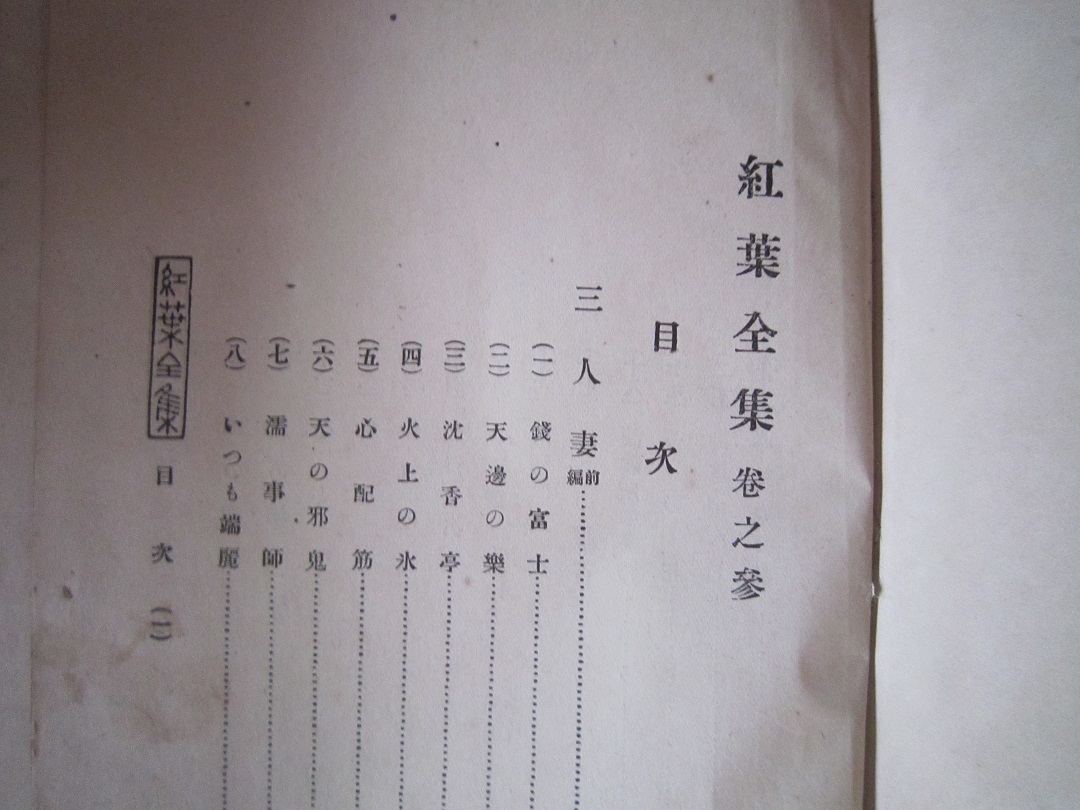 紅葉全集 卷之參
目次
三人妻 前編
(一) 錢の富士
(二) 天邊の樂
(三) 沈香亭
(四) 火上の氷
(五) 心配筋
(六) 天の邪鬼
(七) 濡事師
(八) いつも端麗
紅葉全集 目次 (一)